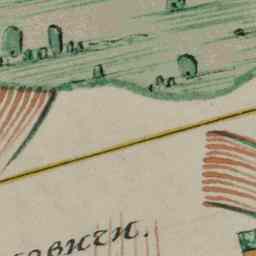 овичи.